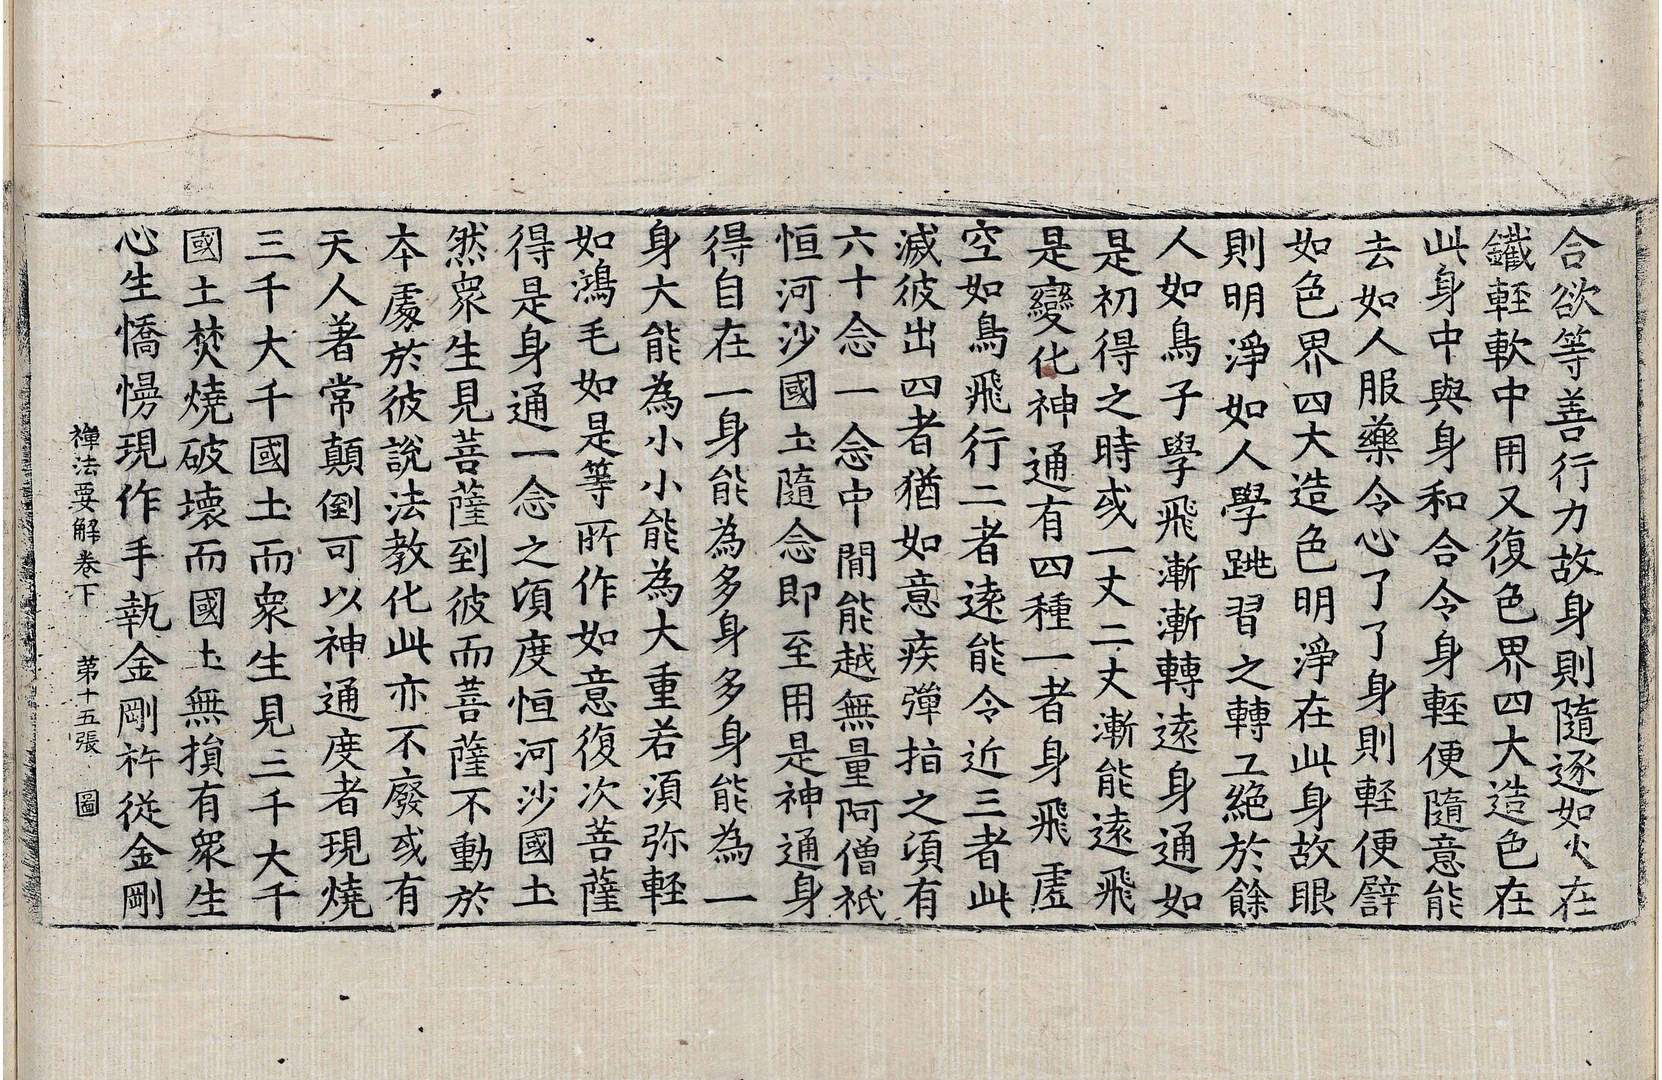 合欲等善行力故身則隨逐如火在
鐵輕軟中用又復色界四大造色在
此身中與身和合令身輕便隨意能
去如人服藥令心了了身則輕便譬
如色界四大造色明淨在此身故眼
則明淨如人學跳習之轉工絕於餘
人如鳥子學飛漸漸轉遠身通如
是初得之時或一丈二丈漸能遠飛
是變化神通有四種一者身飛虛
空如鳥飛行二者遠能令近三者此
滅彼出四者猶如意疾彈指之頃有
六十念一念中間能越無量阿僧祇
恒河沙國土隨念即至用是神通身
得自在一身能為多身多身能為一
身大能為小小能為大重若須弥輕
如鴻毛如是等所作如意復次菩薩
得是身通一念之頃度恒河沙國土
然衆生見菩薩到彼而菩薩不動於
本處於彼說法教化此亦不廢或有
天人著常顛倒可以神通度者現燒
三千大千國土而衆生見三千大千
國土焚燒破壞而國土無損有衆生
心生憍慢現作手執金剛杵從金剛
禪法要解卷下 第十五張 圖